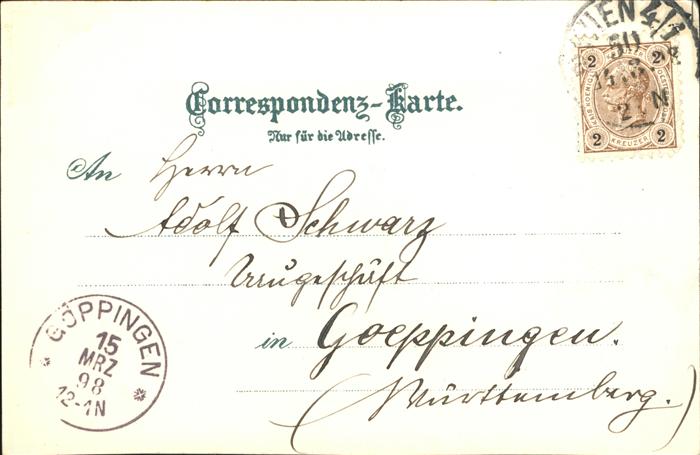 WIEN 4/1
50
2 N
2 2
KREUZER
2 2
Correspondenz-Karte.
Nur für die Adresse.
An Herrn
Adolf Schwarz
in Goeppingen.
(Württemberg.)
GÖPPINGEN
15
MRZ
98
12-1N